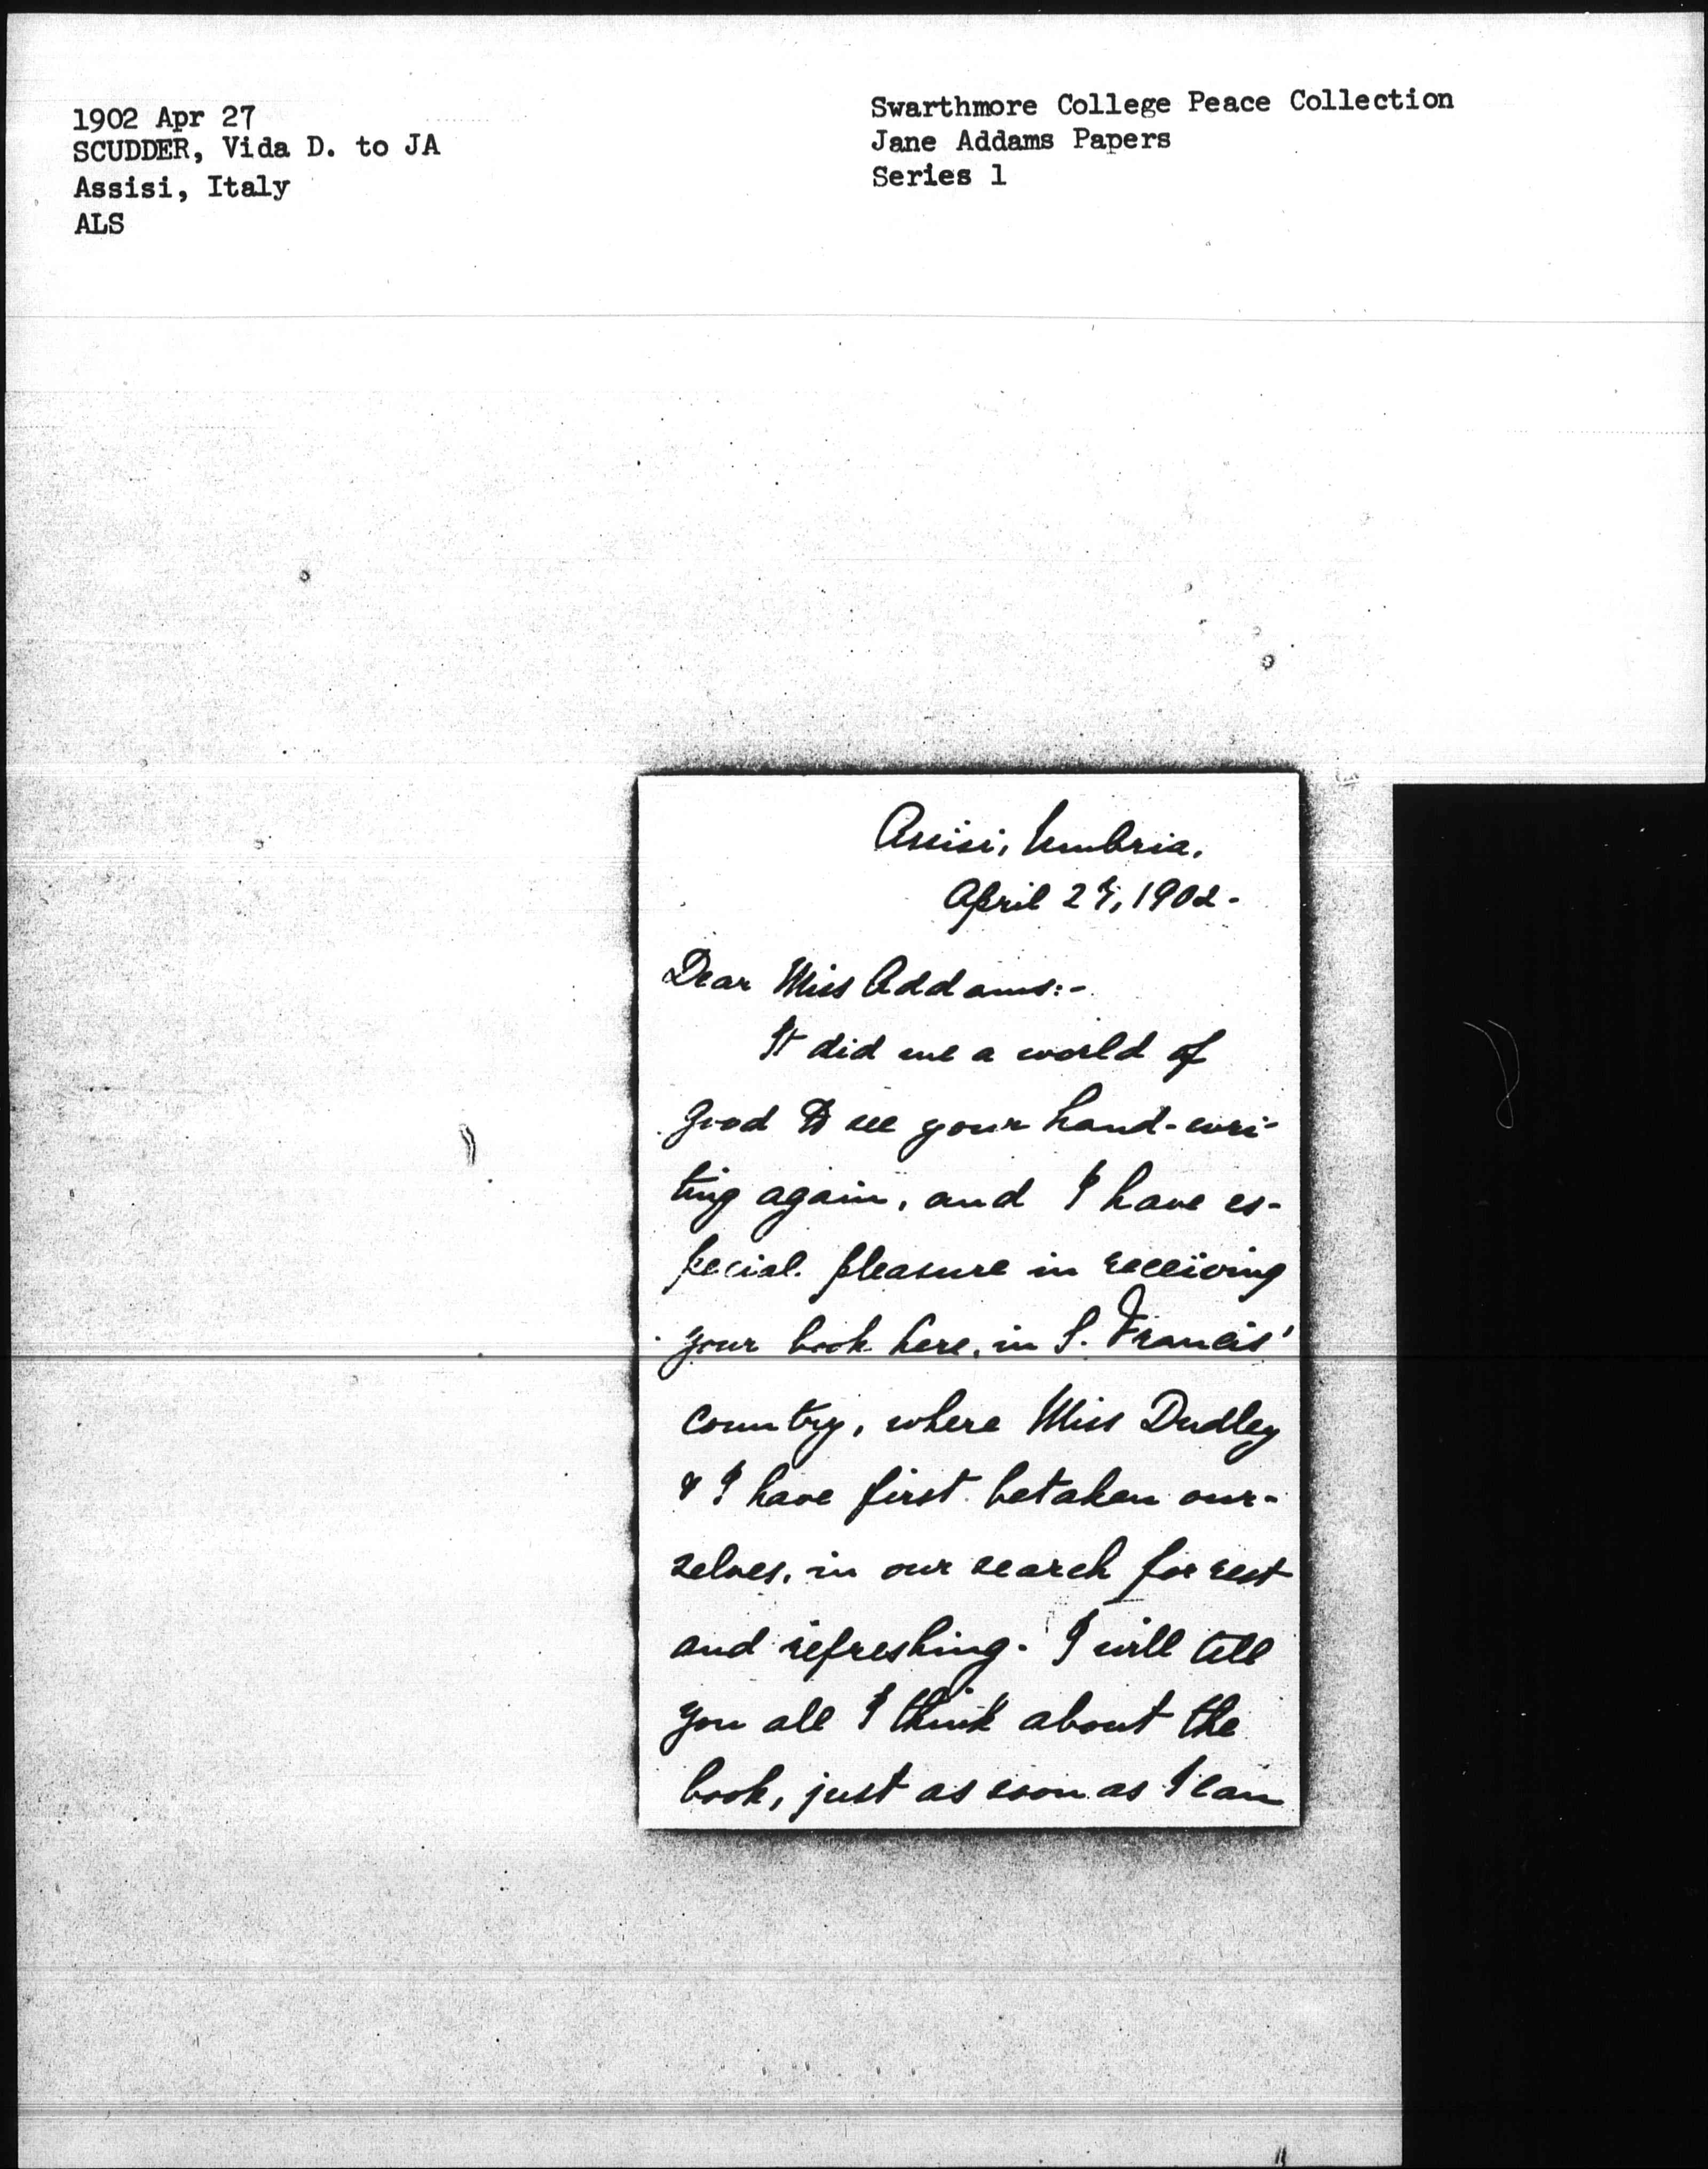 1902 Apr 27
SCUDDER, Vida D. to JA
Assisi, Italy
ALS
Swarthmore College Peace Collection
Jane Addams Papers
Series 1
Assisi, Umbria.
April 27, 1902.
Dear Miss Addams:-
It did me a world of
good to see your hand-wri-
ting again, and I have es-
pecial pleasure in receiving
your book here, in S. Francis'
country, where Miss Dudley
& I have first betaken our-
selves, in our search for rest
and refreshing. I will tell
you all I think about the
book, just as soon as I can